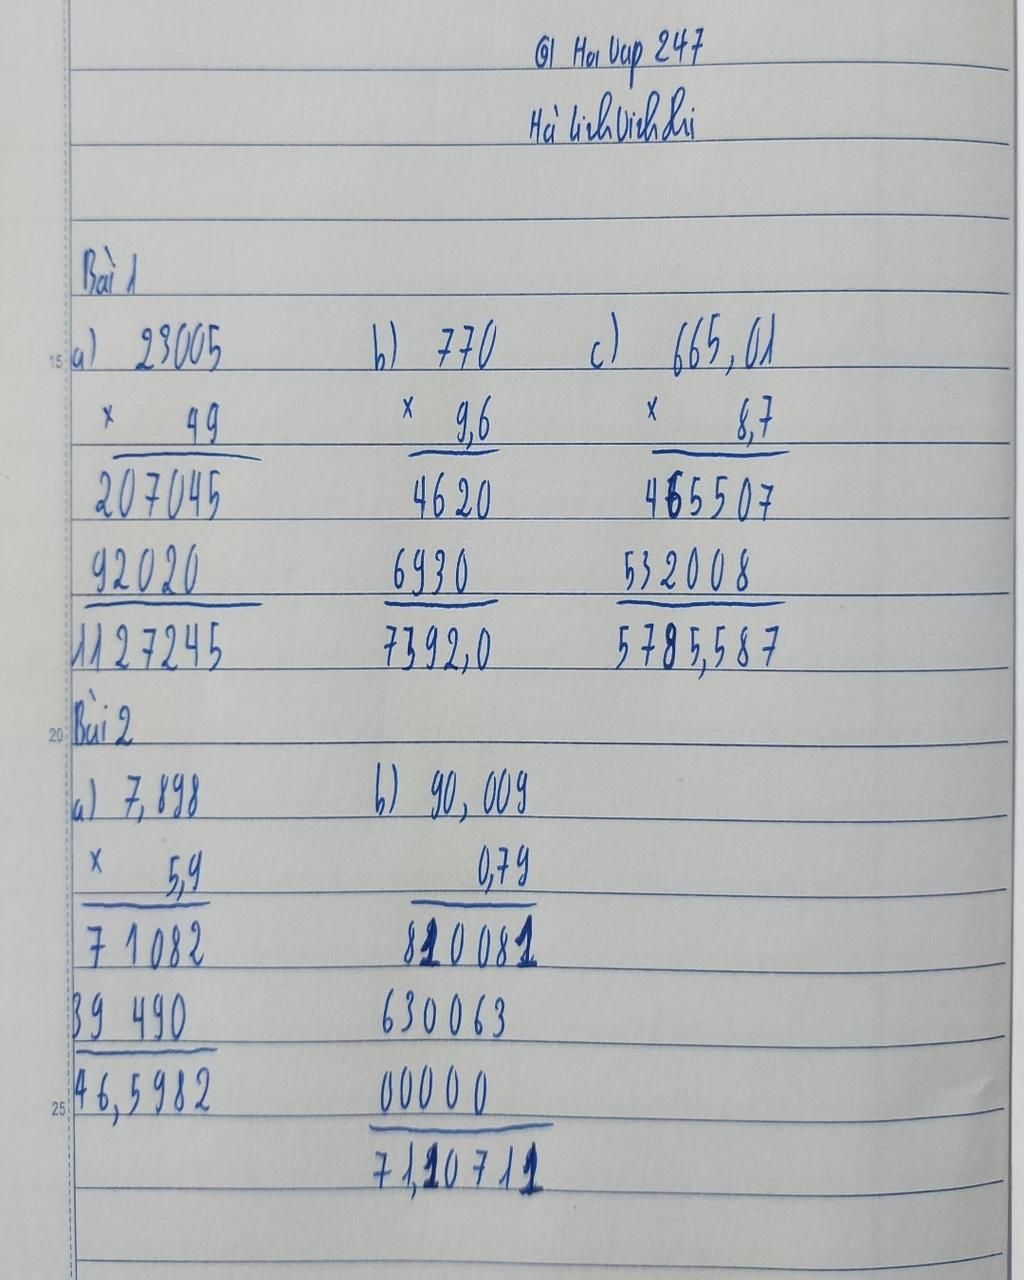 @ Hoi Vap 247
Bài 1
a) 23005 b) 770 c) 665,01
x 49 x 9,6 x 8,7
207045 4620 465507
92020 6930 532008
1127245 7392,0 5785,587
Bài 2
a) 7,898 b) 90,009
x 5,9 0,79
71082 810081
39490 630063
46,5982 00000
71,10711
15
20
25